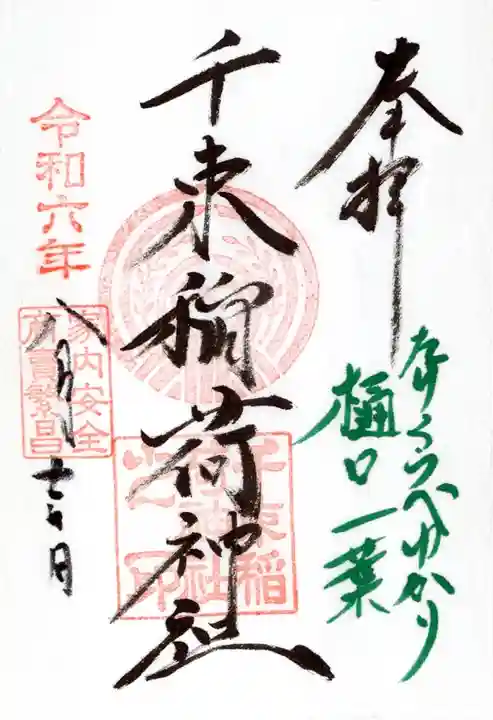 奉拝
たけくらべゆかり
樋口一葉
千束稲荷神社
千束稲
荷神社
之印
令和六年
八月
日
家内安全
商賣繁昌